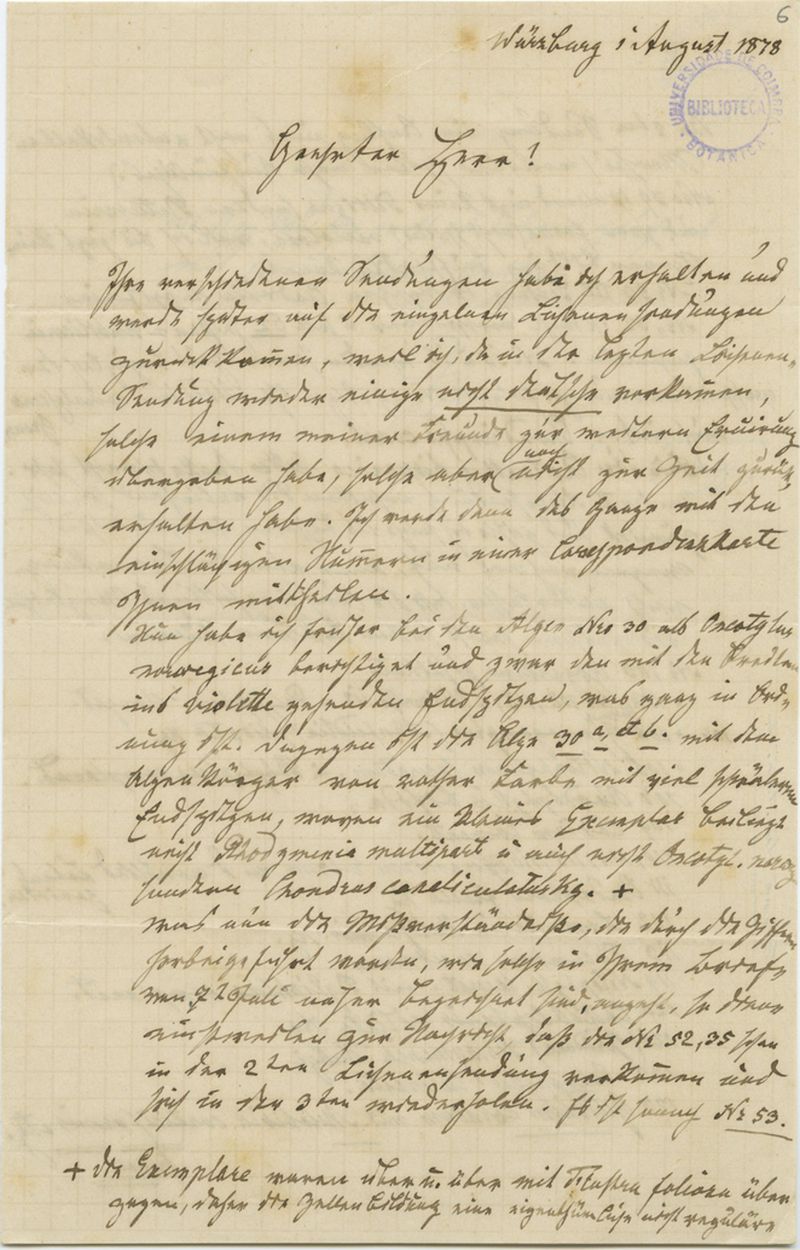 6
Würzburg 1 August 1878
UNIVERSIDADE DE COIMBRA
BIBLIOTECA
BOTANICA
Geehrter Herr!
Ihre verschiedenen Sendungen habe ich erhalten und
werde später auf die einzelnen Lichenensendungen
zurückkommen, weil ich, da in der letzten Lichenen-
Sendung wieder einige nicht deutsche vorkamen,
solche einem meiner Freunde zur weitern Eruirung
übergeben habe, solche aber noch nicht zur Zeit zurück
erhalten habe. Ich werde dann das Ganze mit den
einschlägigen Nummern in einer Correspondenzkarte
Ihnen mittheilen.
Nun habe ich früher bei den Algen Nro 30 als Oncotylus
norvegicus berichtiget und zwar den mit den breiten
ins violette gehenden Endspitzen, was ganz in Ord-
nung ist. Dagegen ist die Alge 30 a, et b. mit dem
Algenkörper von rother Farbe mit viel schmälern
Endspitzen, wovon ein kleines Exemplar beiliegt
nicht Rhodymenia multipart u auch nicht Oncotyl. norveg
sondern Chondrus canaliculatus Kg. +
was nun die Mißverständniße, die durch die Ziffern
herbeigeführt worden, wie solche in Ihrem Briefe
von Juli näher bezeichnet sind, angeht, so diene
einstweilen zur Nachricht, daß die No 52, 35 schon
in der 2ten Lichenensendung vorkommen und
sich in der 3ten wiederholen. Es ist sonach No 53.
+ die Exemplare waren über u. über mit Flustra foliosa über
zogen, daher die Zellenbildung eine eigenthümliche nicht reguläre